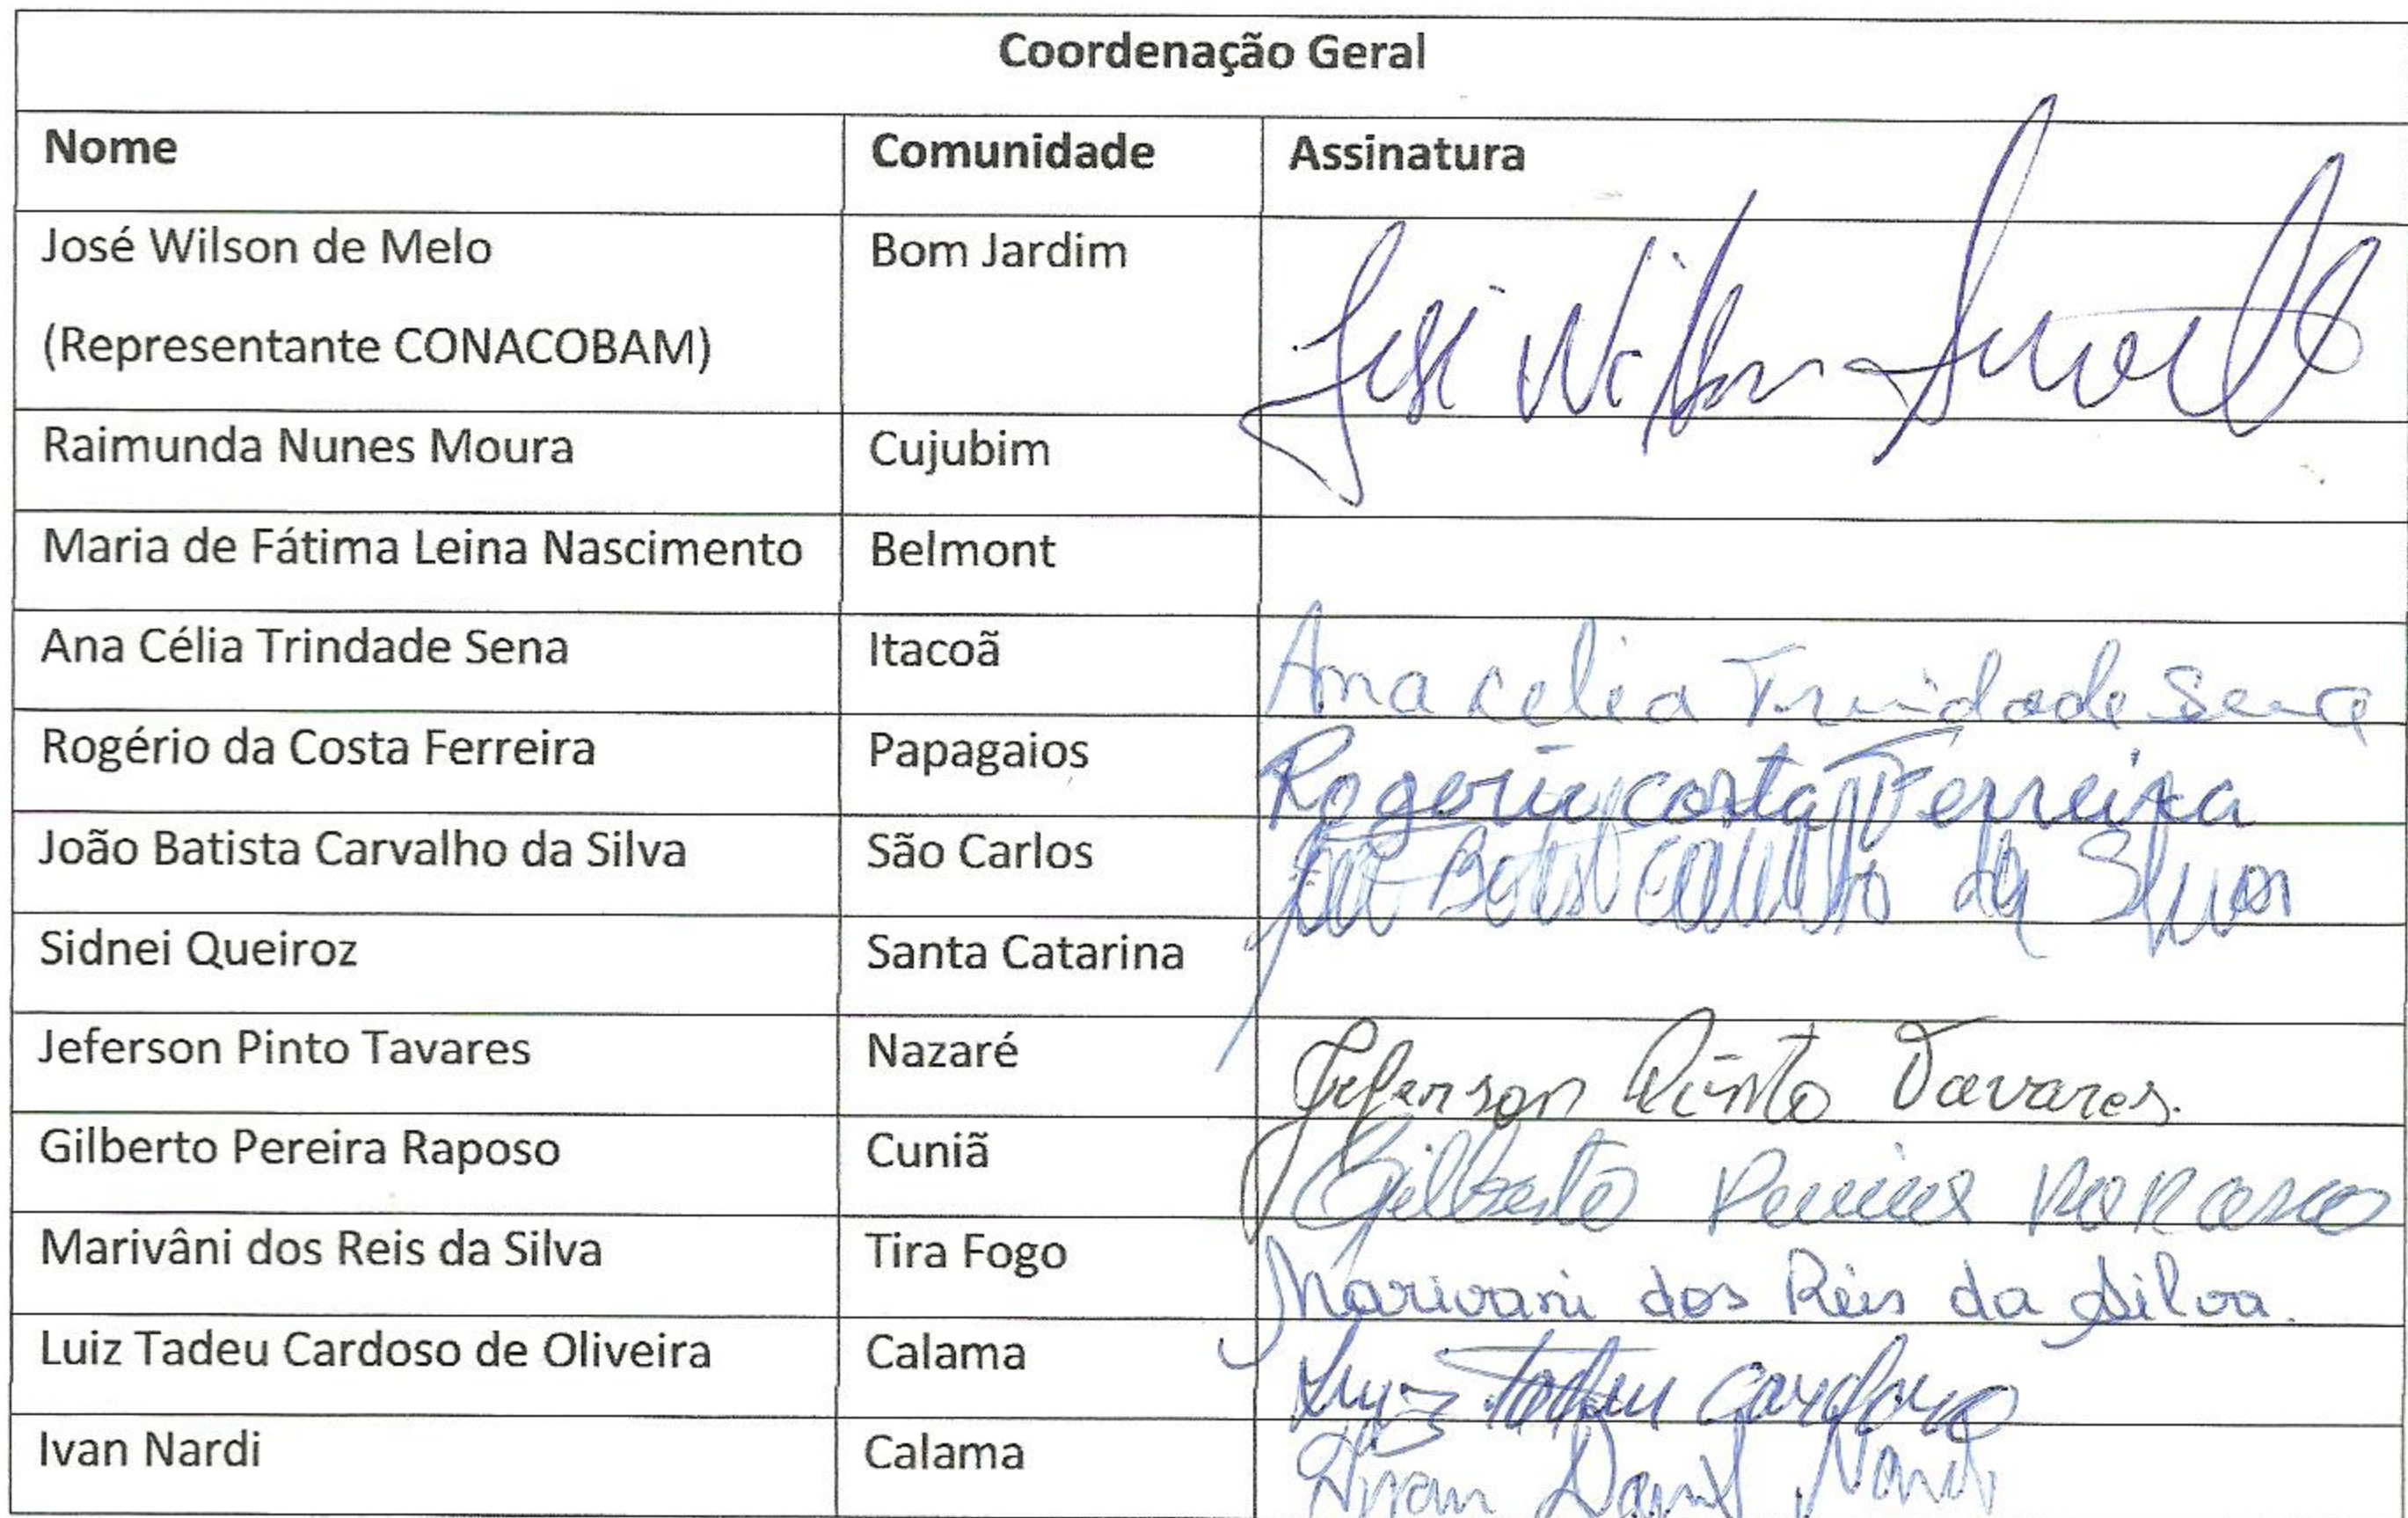 Coordenação Geral
Nome Comunidade Assinatura
José Wilson de Melo Bom Jardim
(Representante CONACOBAM) José Wilson
Raimunda Nunes Moura Cujubim
Maria de Fátima Leina Nascimento Belmont
Ana Célia Trindade Sena Itacoã Ana Celia Trindade Sena
Rogério da Costa Ferreira Papagaios Rogerio costa Ferreira
João Batista Carvalho da Silva São Carlos da Silva
Sidnei Queiroz Santa Catarina
Jeferson Pinto Tavares Nazaré Jeferson Pinto Tavares.
Gilberto Pereira Raposo Cuniã Gilberto Pereira
Marivâni dos Reis da Silva Tira Fogo Marivani dos Reis da Silva.
Luiz Tadeu Cardoso de Oliveira Calama Luiz Tadeu Cardoso
Ivan Nardi Calama Nardi